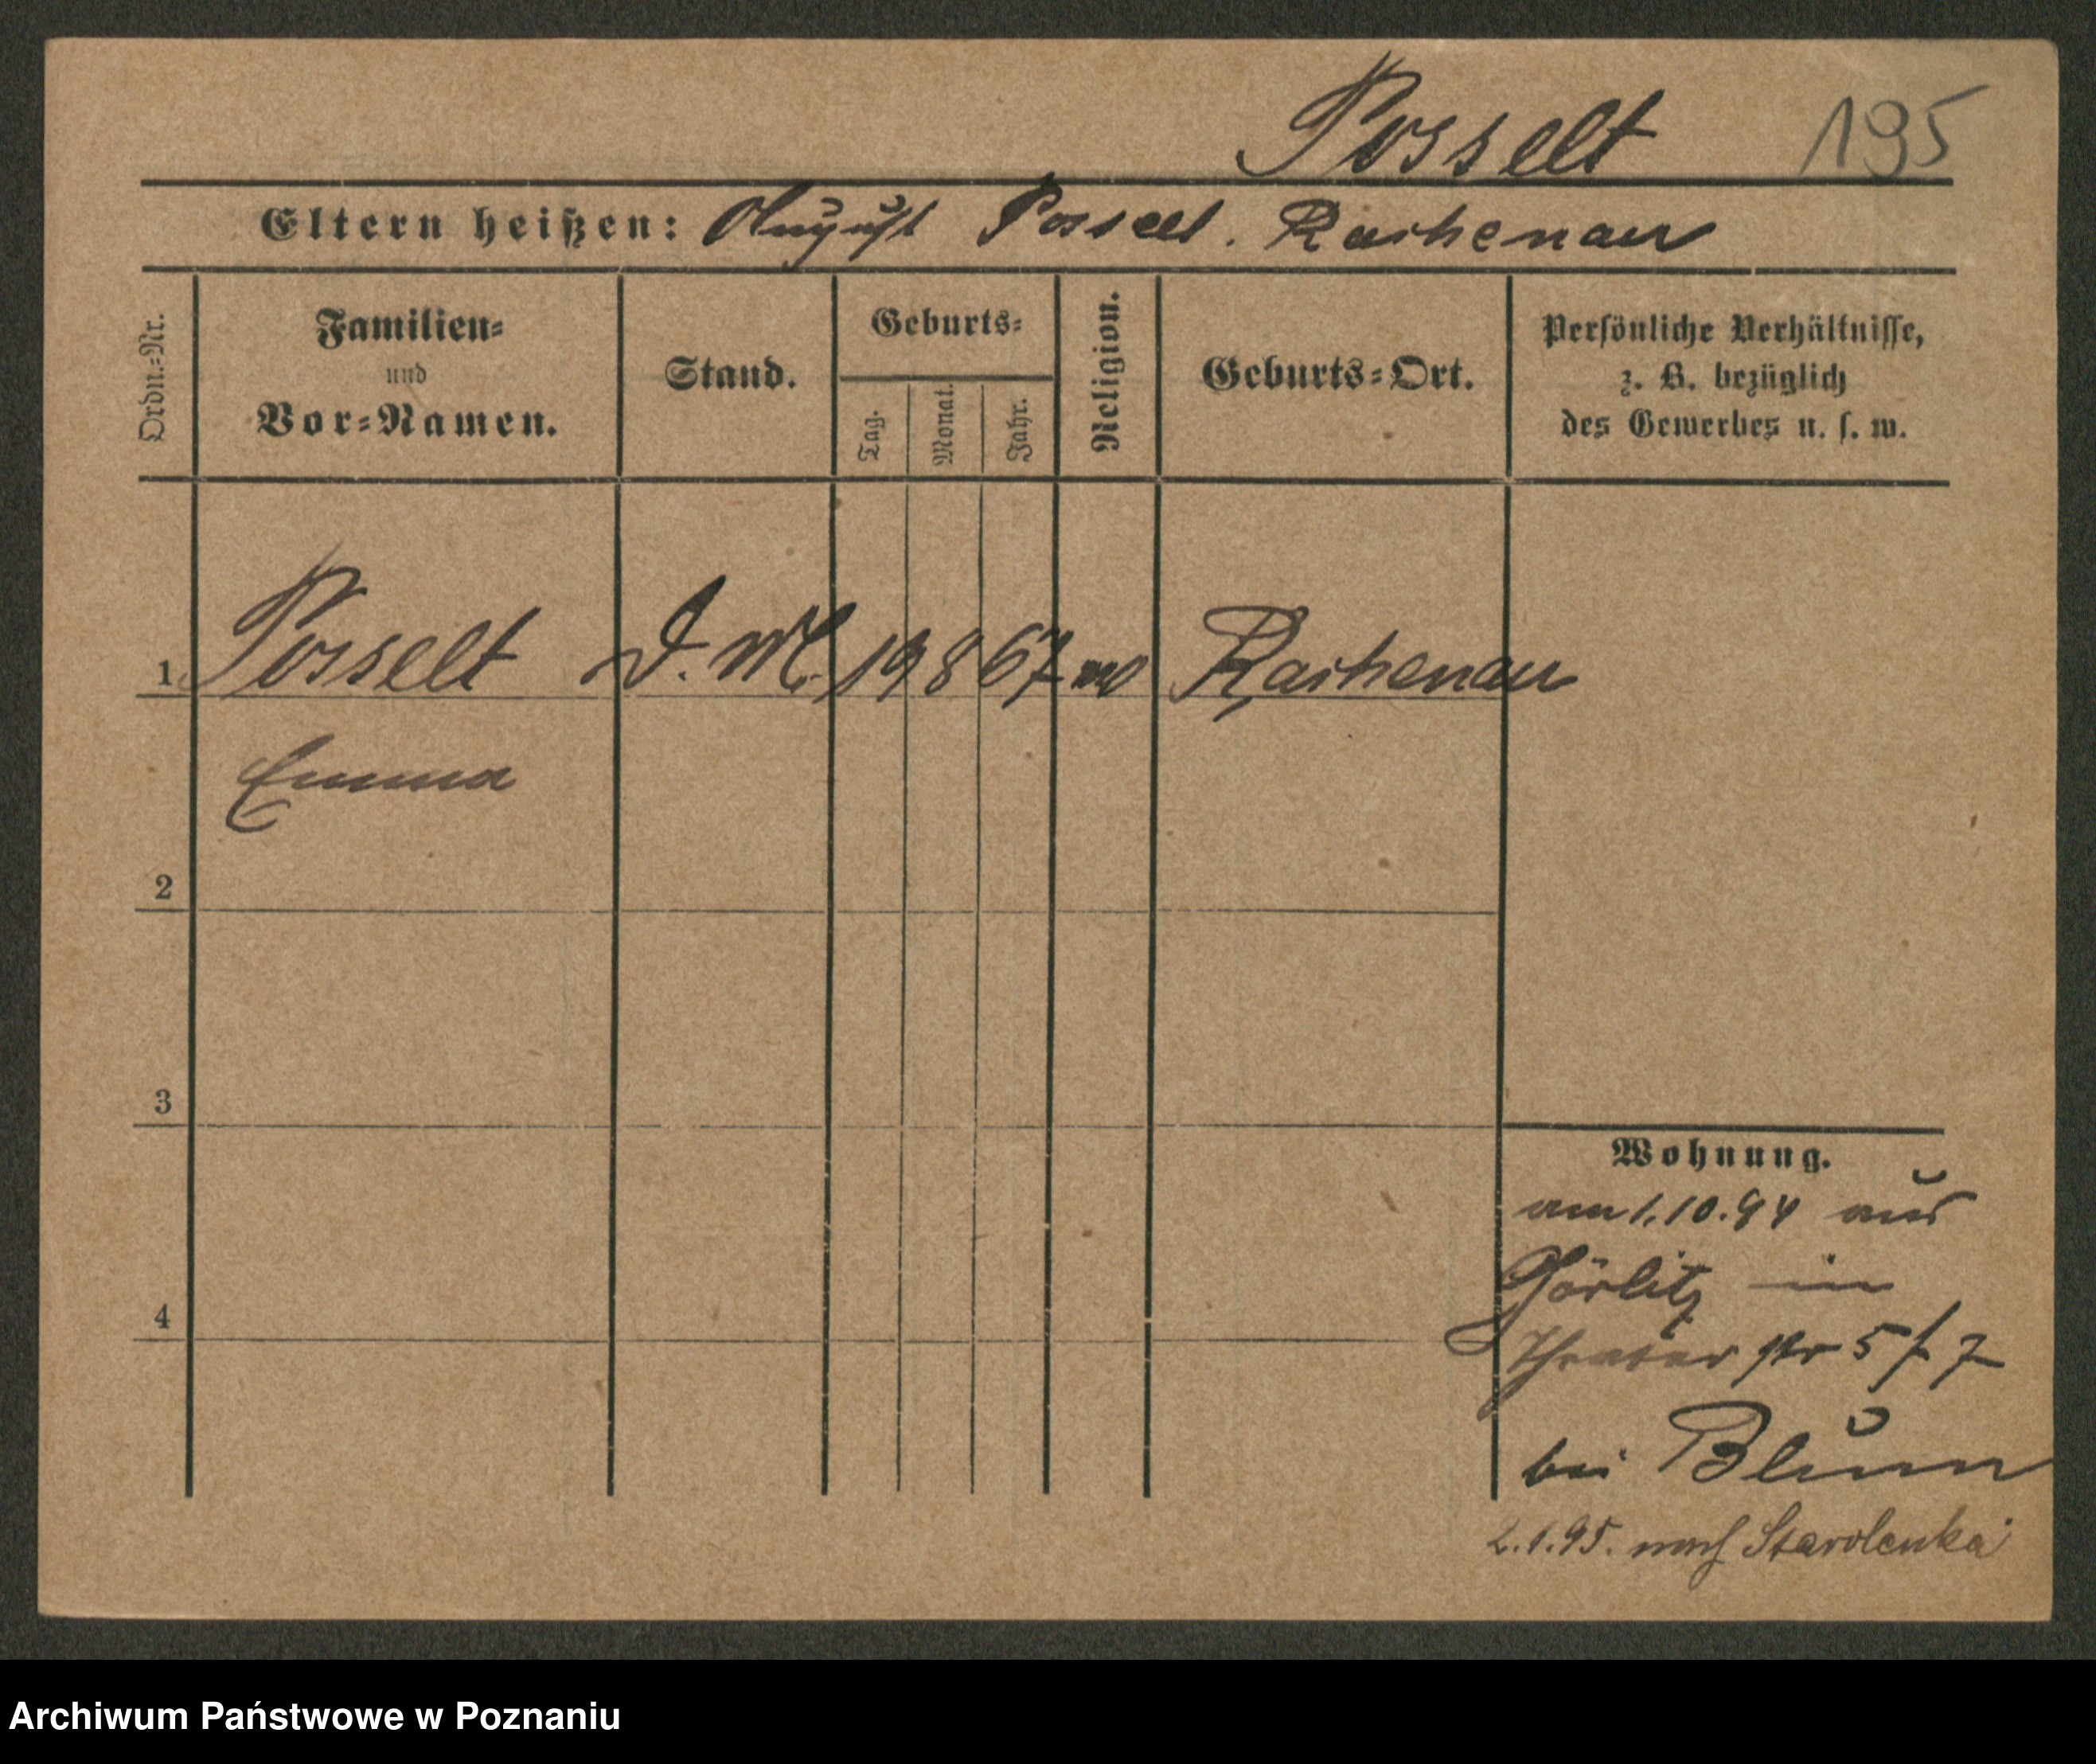 Posselt 195
Eltern heißen: August Posselt. Rachenau
Ordn.-Nr.
Familien-
und
Vor-Namen.
Stand.
Geburts-
Tag.
Monat.
Jahr.
Religion.
Geburts-Ort.
Persönliche Verhältnisse,
z. B. bezüglich
des Gewerbes u. s. w.
1. Posselt D. M. 19 8 67 Rachenau
Emma
2
3
4
Wohnung.
am 1.10.94 aus
Görlitz in
Theater str 5 f 7
bei Blum
2.1.95. nach Starolenka
Archiwum Państwowe w Poznaniu